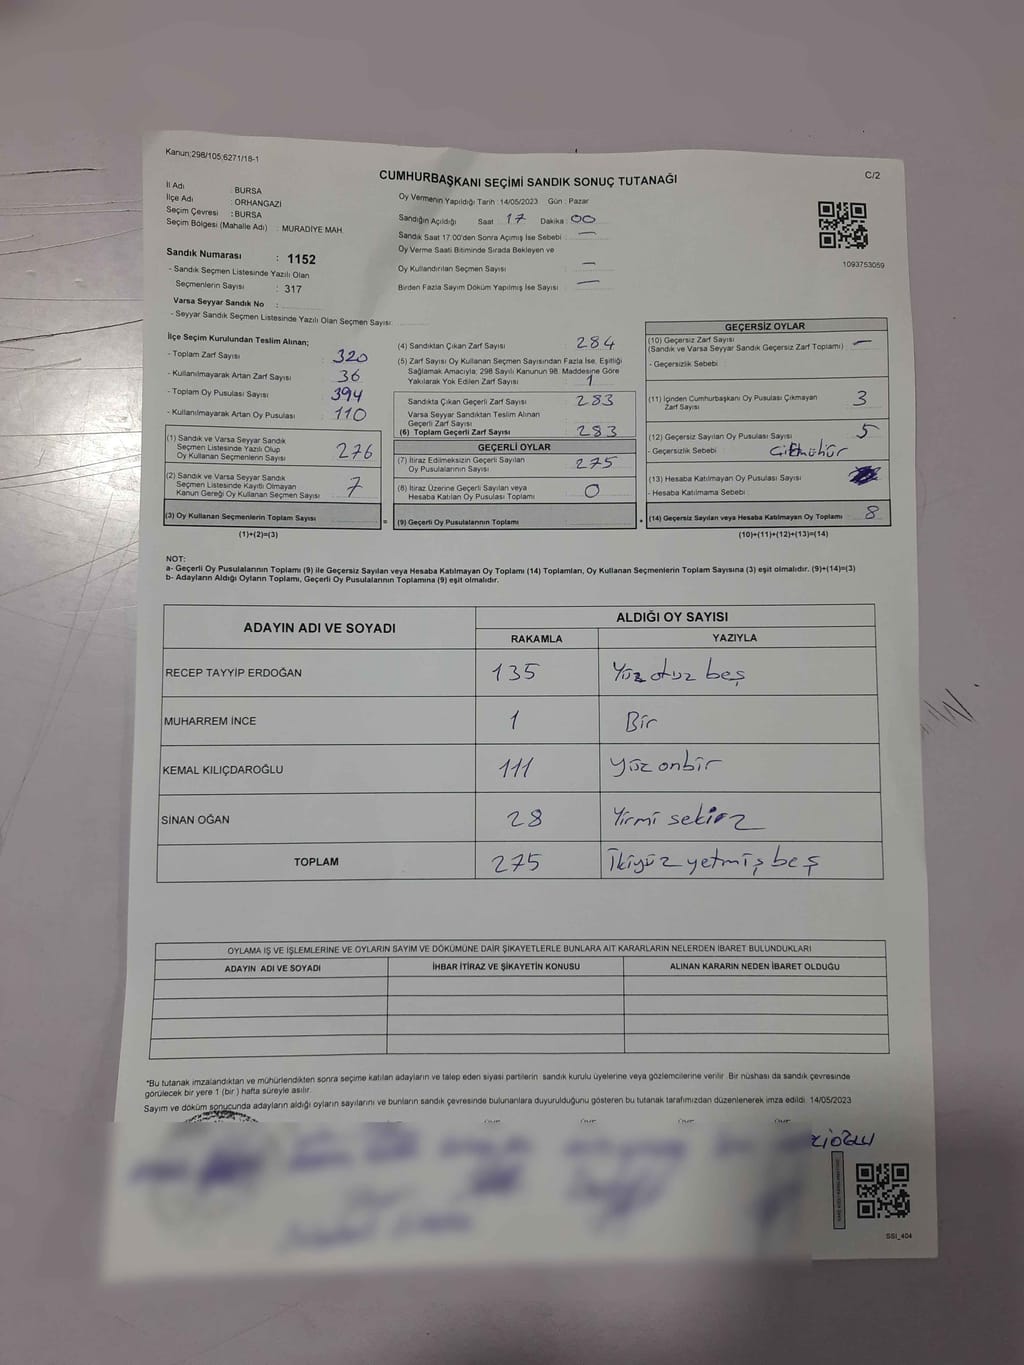 Kanun;298/105;6271/18-1
CUMHURBAŞKANI SEÇİMİ SANDIK SONUÇ TUTANAĞI
C/2
İl Adı : BURSA
İlçe Adı : ORHANGAZİ
Seçim Çevresi : BURSA
Seçim Bölgesi (Mahalle Adı) : MURADİYE MAH.
Oy Vermenin Yapıldığı Tarih : 14/05/2023 Gün : Pazar
Sandığın Açıldığı Saat : 17 Dakika : 00
Sandık Saat 17.00'den Sonra Açımış İse Sebebi : —
Oy Verme Saati Bitiminde Sırada Bekleyen ve
Oy Kullandırılan Seçmen Sayısı : —
Birden Fazla Sayım Döküm Yapılmış İse Sayısı : —
1093753059
Sandık Numarası : 1152
- Sandık Seçmen Listesinde Yazılı Olan
Seçmenlerin Sayısı : 317
Varsa Seyyar Sandık No :
- Seyyar Sandık Seçmen Listesinde Yazılı Olan Seçmen Sayısı:
İlçe Seçim Kurulundan Teslim Alınan;
- Toplam Zarf Sayısı 320
- Kullanılmayarak Artan Zarf Sayısı 36
- Toplam Oy Pusulası Sayısı 394
- Kullanılmayarak Artan Oy Pusulası 110
(1) Sandık ve Varsa Seyyar Sandık
Seçmen Listesinde Yazılı Olup
Oy Kullanan Seçmenlerin Sayısı 276
(2) Sandık ve Varsa Seyyar Sandık
Seçmen Listesinde Kayıtlı Olmayan
Kanun Gereği Oy Kullanan Seçmen Sayısı 7
(3) Oy Kullanan Seçmenlerin Toplam Sayısı =
(1)+(2)=(3)
(4) Sandıktan Çıkan Zarf Sayısı : 284
(5) Zarf Sayısı Oy Kullanan Seçmen Sayısından Fazla İse, Eşitliği
Sağlamak Amacıyla; 298 Sayılı Kanunun 98. Maddesine Göre
Yakılarak Yok Edilen Zarf Sayısı : 1
Sandıkta Çıkan Geçerli Zarf Sayısı : 283
Varsa Seyyar Sandıktan Teslim Alınan
Geçerli Zarf Sayısı :
(6) Toplam Geçerli Zarf Sayısı : 283
GEÇERLİ OYLAR
(7) İtiraz Edilmeksizin Geçerli Sayılan
Oy Pusulalarının Sayısı : 275
(8) İtiraz Üzerine Geçerli Sayılan veya
Hesaba Katılan Oy Pusulası Toplamı : 0
(9) Geçerli Oy Pusulalarının Toplamı : +
GEÇERSİZ OYLAR
(10) Geçersiz Zarf Sayısı : —
(Sandık ve Varsa Seyyar Sandık Geçersiz Zarf Toplamı)
- Geçersizlik Sebebi :
(11) İçinden Cumhurbaşkanı Oy Pusulası Çıkmayan
Zarf Sayısı : 3
(12) Geçersiz Sayılan Oy Pusulası Sayısı : 5
- Geçersizlik Sebebi : Çift mühür
(13) Hesaba Katılmayan Oy Pusulası Sayısı
- Hesaba Katılmama Sebebi :
(14) Geçersiz Sayılan veya Hesaba Katılmayan Oy Toplamı : 8
(10)+(11)+(12)+(13)=(14)
NOT:
a- Geçerli Oy Pusulalarının Toplamı (9) ile Geçersiz Sayılan veya Hesaba Katılmayan Oy Toplamı (14) Toplamları, Oy Kullanan Seçmenlerin Toplam Sayısına (3) eşit olmalıdır. (9)+(14)=(3)
b- Adayların Aldığı Oyların Toplamı, Geçerli Oy Pusulalarının Toplamına (9) eşit olmalıdır.
ADAYIN ADI VE SOYADI ALDIĞI OY SAYISI
RAKAMLA YAZIYLA
RECEP TAYYİP ERDOĞAN 135 Yüz otuz beş
MUHARREM İNCE 1 Bir
KEMAL KILIÇDAROĞLU 111 yüz onbir
SİNAN OĞAN 28 Yirmi sekiz
TOPLAM 275 İkiyüz yetmiş beş
OYLAMA İŞ VE İŞLEMLERİNE VE OYLARIN SAYIM VE DÖKÜMÜNE DAİR ŞİKAYETLERLE BUNLARA AİT KARARLARIN NELERDEN İBARET BULUNDUKLARI
ADAYIN ADI VE SOYADI İHBAR İTİRAZ VE ŞİKAYETİN KONUSU ALINAN KARARIN NEDEN İBARET OLDUĞU
*Bu tutanak imzalandıktan ve mühürlendikten sonra seçime katılan adayların ve talep eden siyasi partilerin sandık kurulu üyelerine veya gözlemcilerine verilir. Bir nüshası da sandık çevresinde
görülecek bir yere 1 (bir) hafta süreyle asılır.
Sayım ve döküm sonucunda adayların aldığı oyların sayılarını ve bunların sandık çevresinde bulunanlara duyurulduğunu gösteren bu tutanak tarafımızdan düzenlenerek imza edildi. 14/05/2023
SSI_404